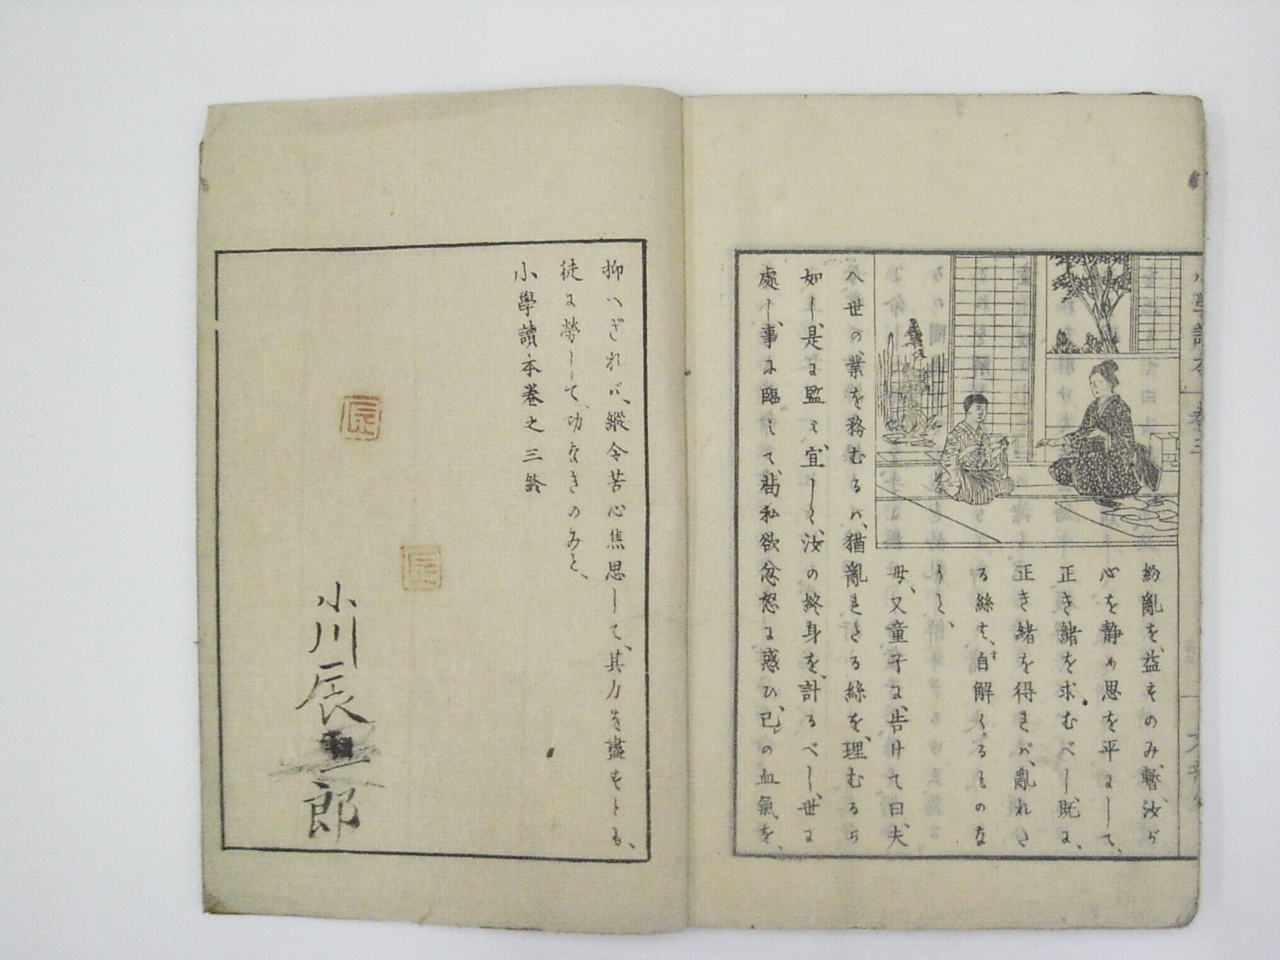 紛亂を、益すのみ、暫、汝が
心を靜め思を平にして、
正き緒を求むべし、既に、
正き緒を得れバ、亂れた
る絲も、自解くるものな
りと、
母、又童子に、告けて曰、夫
人世の、業を務むるハ、猶亂れたる絲を、理むるが
如し、是に監て、宜しく、汝の終身を、計るべし、世に
處し、事に臨して、若私欲忿怒に惑ひ、己の血氣を、
抑へざれバ、縱令苦心焦思して、其力を盡すとも、
徒に勞して、功なきのみと、
小學讀本卷之三終
小川辰三郎
辰
辰